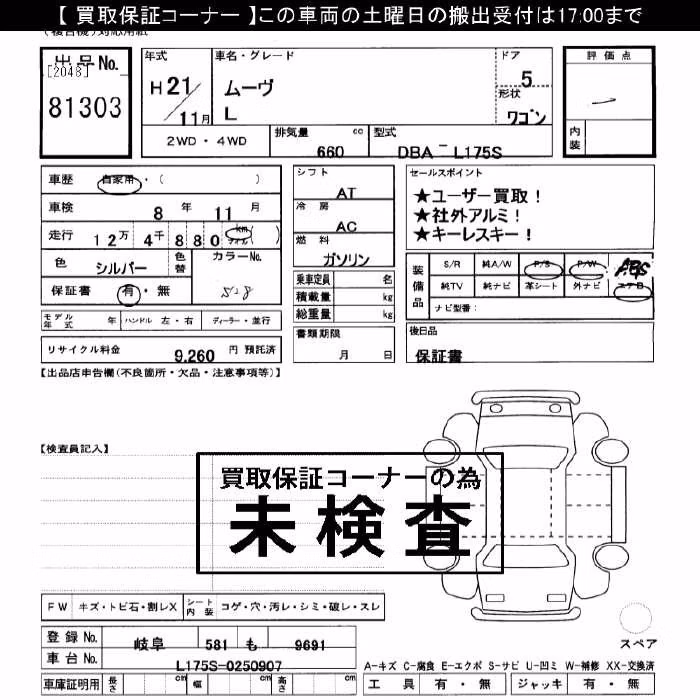 【 買取保証コーナー 】この車両の土曜日の搬出受付は17:00まで
出品No.
[2048]
81303
年式
H 21/11月
車名・グレード
ムーヴ
L
ドア
5
形状
ワゴン
評価点
内装
2WD・4WD
排気量 cc
660
型式
DBA－L175S
車歴 自家用・( )
車検 8 年 11 月
走行 12万 4千 880 km マイル ( )
色 シルバー 色替 カラーNo.
保証書 有・無 S28
シフト
AT
冷房
AC
燃料
ガソリン
乗車定員 名
積載量 kg
総重量 kg
書類期限
月 日
セールスポイント
★ユーザー買取！
★社外アルミ！
★キーレスキー！
装備品 S/R 純A/W P/S P/W ABS
純TV 純ナビ 革シート 外ナビ エアB
ナビ型番：
モデル年式 年 ハンドル 左・右 ディーラー・並行
リサイクル料金 9,260 円 預託済
後日品
保証書
【出品店申告欄(不良箇所・欠品・注意事項等)】
【検査員記入】
買取保証コーナーの為
未検査
FW キズ・トビ石・割レX シート内装 コゲ・穴・汚レ・シミ・破レ・スレ
登録No. 岐阜 581 も 9691
車台No. L175S-0250907
車庫証明用 長さ cm 幅 cm 高さ cm
スペア
A-キズ C-腐食 E-エクボ S-サビ U-凹ミ W-補修 XX-交換済
工具 有・無 ジャッキ 有・無